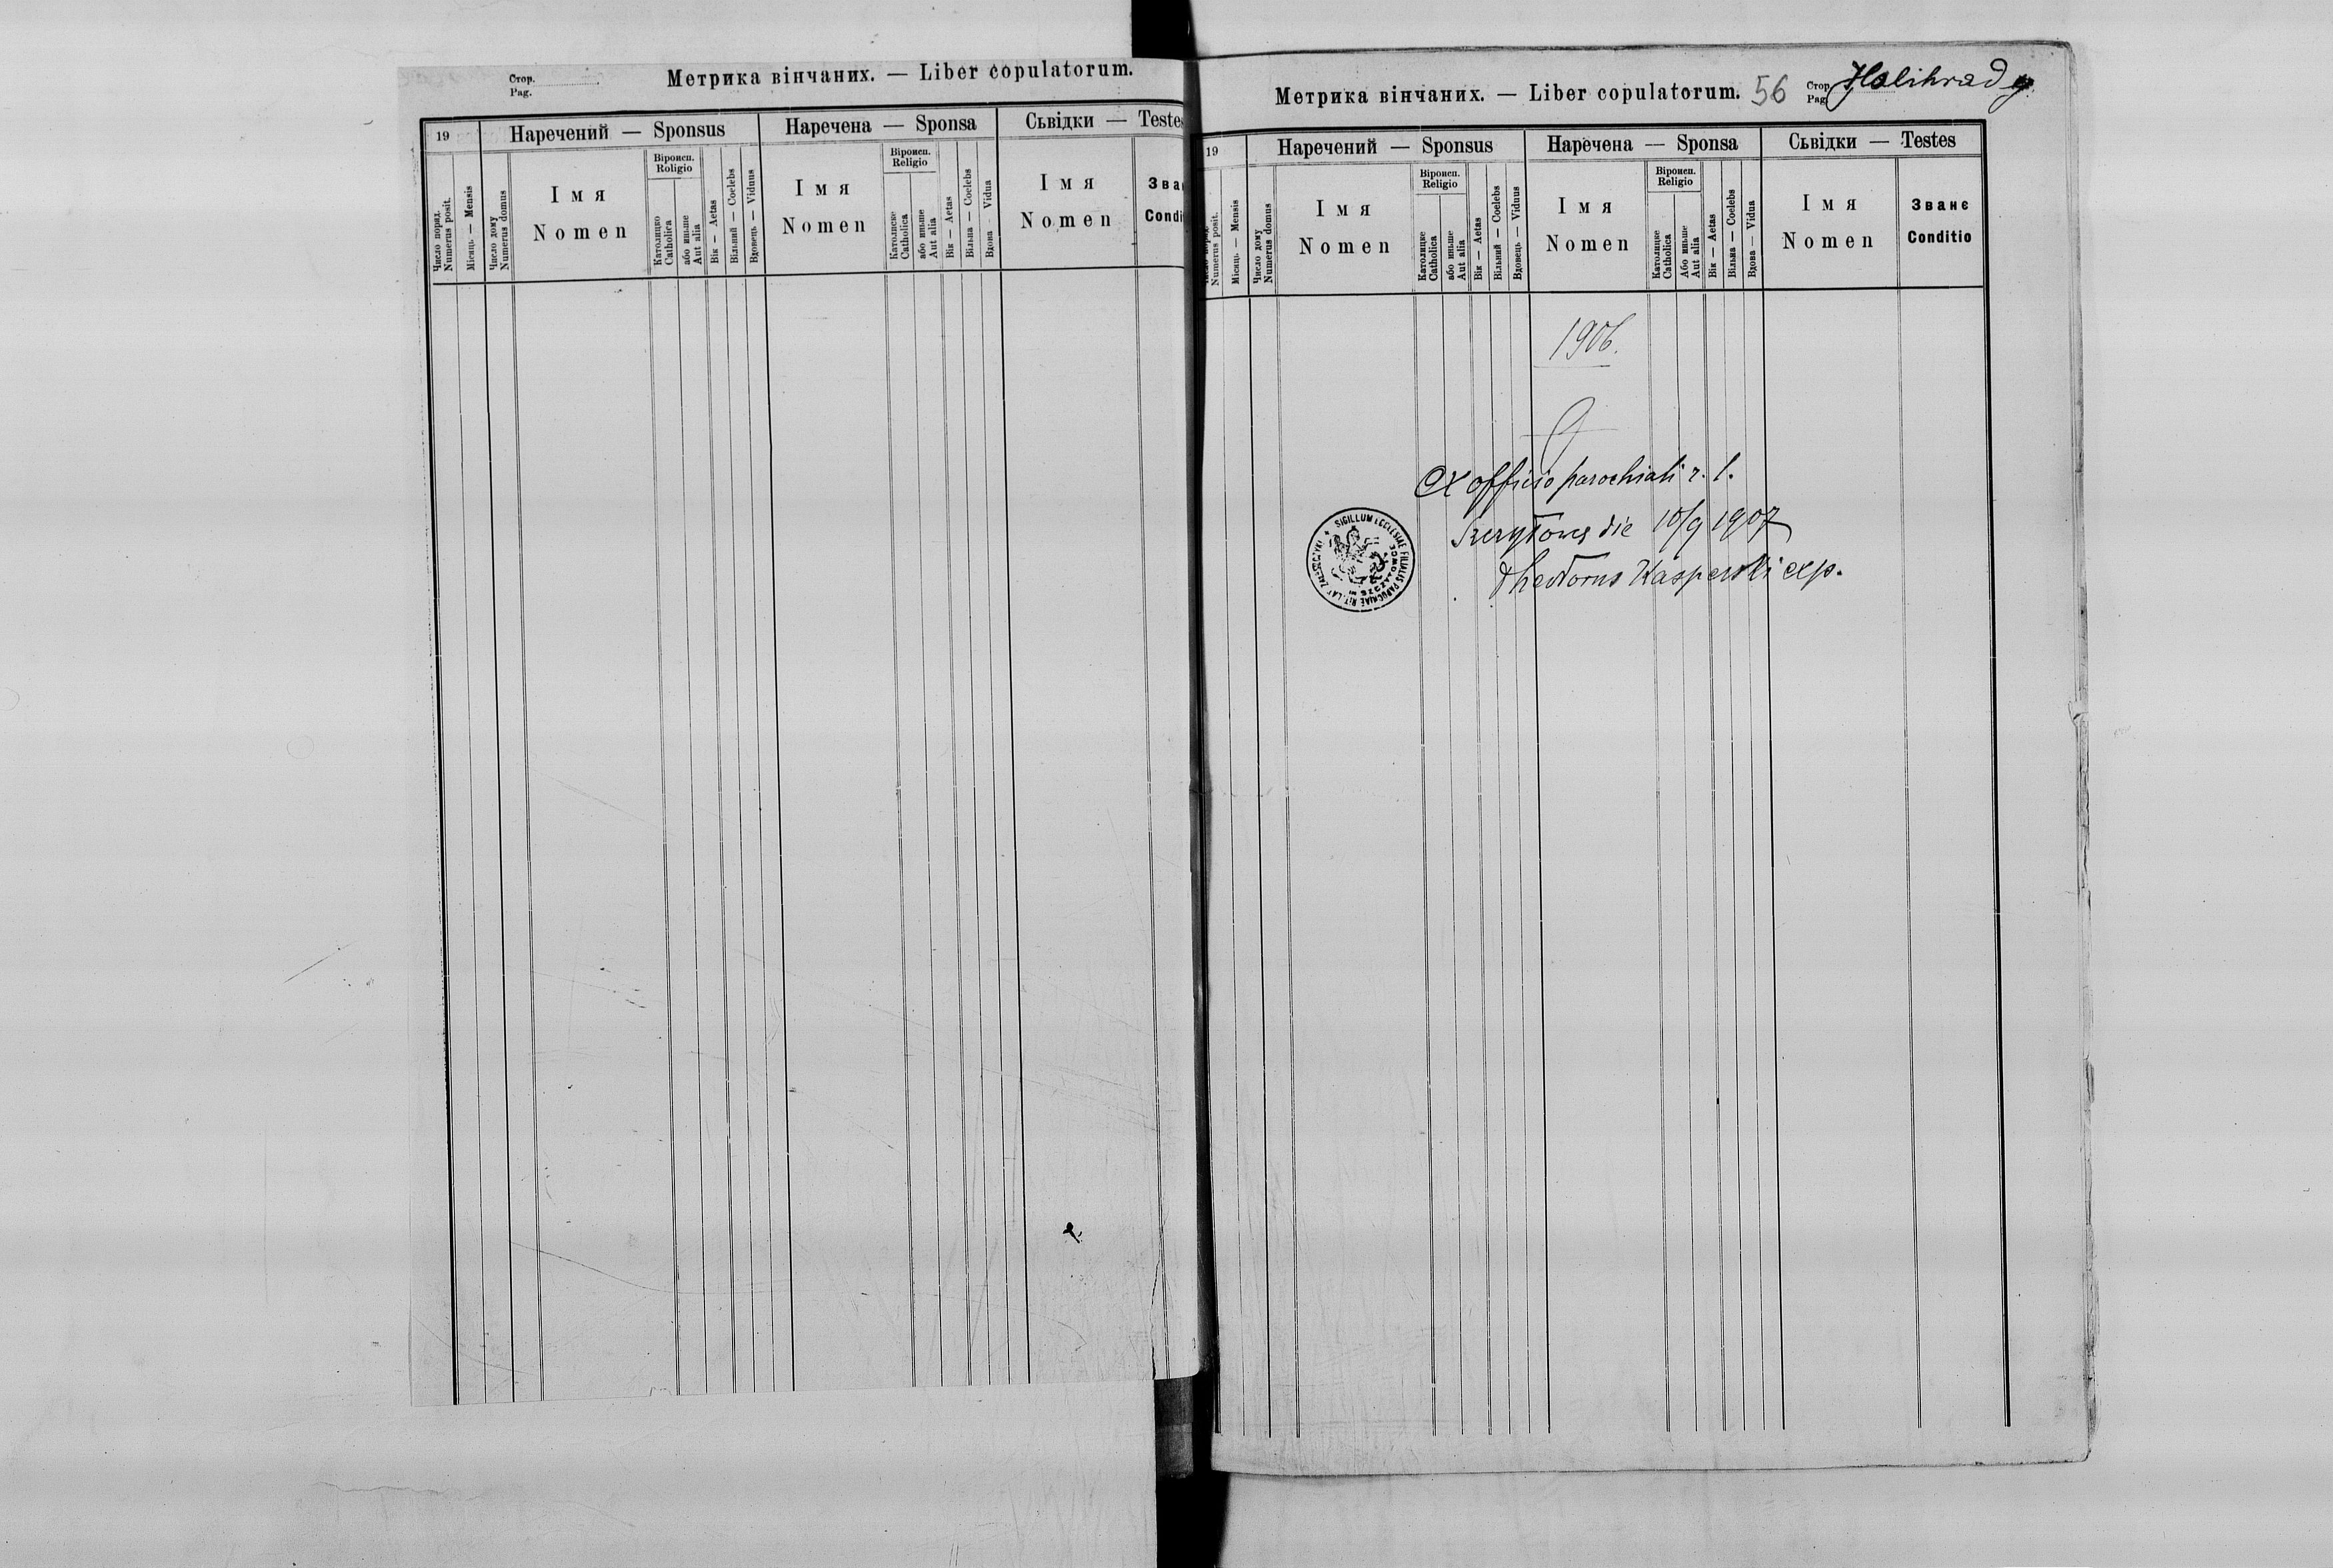 Стор.
Pag.
Метрика вінчаних. — Liber copulatorum.
19
Наречений — Sponsus
Наречена — Sponsa
Сьвідки — Testes
Число поряд.
Numerus posit.
Місяць — Mensis
Число дому
Numerus domus
Імя
Nomen
Віроисп.
Roligio
Католицко
Catholica
або иньше
Aut alia
Вік — Aetas
Вільний — Coelebs
Вдовець — Viduus
Імя
Nomen
Віроисп.
Religio
Католиске
Catholica
або иньше
Aut alia
Вік — Aetas
Вільна — Coelebs
Вдова Vidua
Імя
Nomen
Зва
Condi
Метрика вінчаних. — Liber copulatorum.
56
Стор
Pag
Holihrady
19
Наречений — Sponsus
Наречена — Sponsa
Сьвідки — Testes
Numerus posit.
Місяць. — Mensis
Число дому
Numerus domus
Імя
Nomen
Віроисп.
Religio
Католицке
Catholica
або иньше
Aut alia
Вік — Aetas
Вільний — Coelebs
Вдовець — Viduus
Імя
Nomen
Віроисп.
Religio
Католицке
Catholica
Або иньше
Aut alia
Вік — Aetas
Вільна — Coelebs
Вдова — Vidua
Імя
Nomen
Званє
Conditio
1906.
Ex officio parochiali r. l.
die 10/9 1907
Kasperski exp.
SIGILLUM ECCLESIAE FILIALIS PAROCHIAE RIT. LAT.